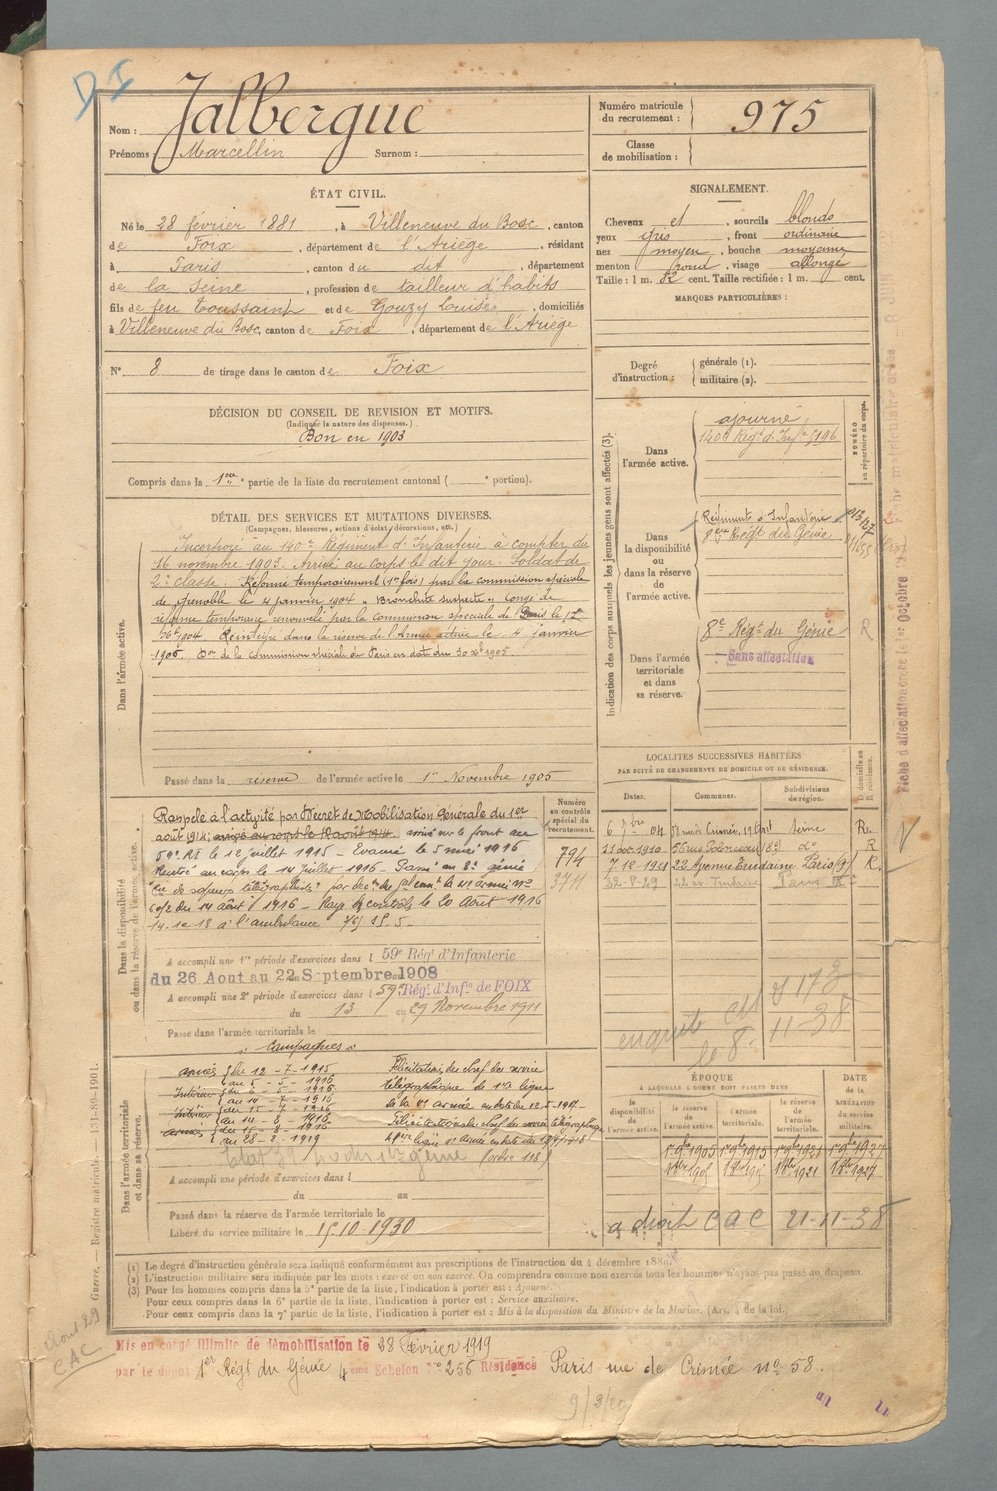 D I
Nom : Jalbergue
Prénoms : Marcellin Surnom :
Numéro matricule du recrutement : 975
Classe de mobilisation :
ÉTAT CIVIL.
Né le 28 février 1881, à Villeneuve du Bosc, canton
de Foix, département de l'Ariège, résidant
à Paris, canton du dit, département
de la Seine, profession de tailleur d'habits
fils de feu Toussaint et de Gouzy Louise, domiciliés
à Villeneuve du Bosc, canton de Foix, département de l'Ariège
N° 8 de tirage dans le canton de Foix
SIGNALEMENT.
Cheveux et, sourcils blonds
yeux gris, front ordinaire
nez moyen, bouche moyenne
menton rond, visage allongé
Taille : 1 m. 82 cent. Taille rectifiée : 1 m. cent.
MARQUES PARTICULIÈRES :
Degré d'instruction : générale (1).
militaire (2).
DÉCISION DU CONSEIL DE REVISION ET MOTIFS.
(Indiquer la nature des dispenses.)
Bon en 1903
Compris dans la 1ere partie de la liste du recrutement cantonal ( e portion).
DÉTAIL DES SERVICES ET MUTATIONS DIVERSES.
(Campagnes, blessures, actions d'éclat, décorations, etc.)
Dans l'armée active.
Incorporé au 140e Régiment d'Infanterie à compter du
16 novembre 1903. Arrivé au corps le dit jour. Soldat de
2e classe. Réformé temporairement (1re fois) par la commission spéciale
de Grenoble le 4 janvier 1904 "Bronchite suspecte" congé de
réforme temporaire renouvelé par la commission spéciale de Paris le
1904. Réintégré dans la réserve de l'Armée active le 4 janvier
1906 de la commission spéciale de Paris en date du 30 1905.
Passé dans la réserve de l'armée active le 1er Novembre 1905
Indication des corps auxquels les jeunes gens sont affectés (3).
NUMÉRO au répertoire du corps.
Dans l'armée active.
ajourné
140e Régt d'Infie 5196
Dans la disponibilité ou dans la réserve de l'armée active.
Régiment d'Infanterie
8eme Régt du Génie
Dans l'armée territoriale et dans sa réserve.
8e Régt du Génie R
Sans affectation
LOCALITÉS SUCCESSIVES HABITÉES
PAR SUITE DE CHANGEMENTS DE DOMICILE OU DE RÉSIDENCE.
Dates. Communes. Subdivisions de région. D domicile ou R résidence.
6 7bre 04 58 rue de Crimée, 19e Seine R.
11 oct 1910 56 rue Polonceau 18e do R
7-12-1921 22 Avenue Trudaine Paris (9) R.
22-8-29 22 av Trudaine Paris IX
Dans la disponibilité ou dans la réserve de l'armée active.
Numéro au contrôle spécial du recrutement.
794
3711
Rappelé à l'activité par Décret de Mobilisation Générale du 1er
août 1914; arrivé au corps le 18 août 1914. arrivé sur le front au
59e RI le 12 juillet 1915 – Evacué le 5 mai 1916
Rentré au corps le 14 juillet 1916 – Passé au 8e génie
Cie de sapeurs télégraphistes
du 14 août 1916 – Rayé des contrôles le 20 Août 1916
à l'ambulance
A accompli une 1re période d'exercices dans l 59e Rég. d'Infanterie
du 26 Aout au 22 Septembre 1908
A accompli une 2e période d'exercices dans l 59e Rég. d'Infie de FOIX
du 13 au 29 Novembre 1911
Passé dans l'armée territoriale le
Campagnes
Dans l'armée territoriale et dans sa réserve.
Armées du 12-7-1915
au 5-5-1916
Intérieur du 6-5-1916
au 14-7-1916
Intérieur du 15-7-1916
au 14-8-1916
Armées du 15-8-1916
au 28-2-1919
Félicitations du chef du service
télégraphique de 1re ligne
Félicitations du chef du service télégraphique
(ordre 118)
A accompli une période d'exercices dans l
du au
Passé dans la réserve de l'armée territoriale le
Libéré du service militaire le 15.10.1930
ÉPOQUE
À LAQUELLE L'HOMME DOIT PASSER DANS
DATE de la LIBÉRATION du service militaire.
la disponibilité de l'armée active. la réserve de l'armée active. l'armée territoriale. la réserve de l'armée territoriale.
1er 9bre 1905 1er 9bre 1915 1er 9bre 1921 1er 9bre 1927
a droit C A C 21-11-38
(1) Le degré d'instruction générale sera indiqué conformément aux prescriptions de l'instruction du 4 décembre 1889.
(2) L'instruction militaire sera indiquée par les mots : exercé ou non exercé. On comprendra comme non exercés tous les hommes n'ayant pas passé au drapeau.
(3) Pour les hommes compris dans la 5e partie de la liste, l'indication à porter est : Ajourné.
Pour ceux compris dans la 6e partie de la liste, l'indication à porter est : Service auxiliaire.
Pour ceux compris dans la 7e partie de la liste, l'indication à porter est : Mis à la disposition du Ministre de la Marine. (Art. 4 de la loi.)
Guerre. — Registre matricule. — 131-89-1901.
Aout 29
CAC
Mis en congé illimité de démobilisation le 28 Février 1919
par le dépôt 1er Régt du Génie 4eme Echelon N° 256 Résidence Paris rue de Crimée no 58.